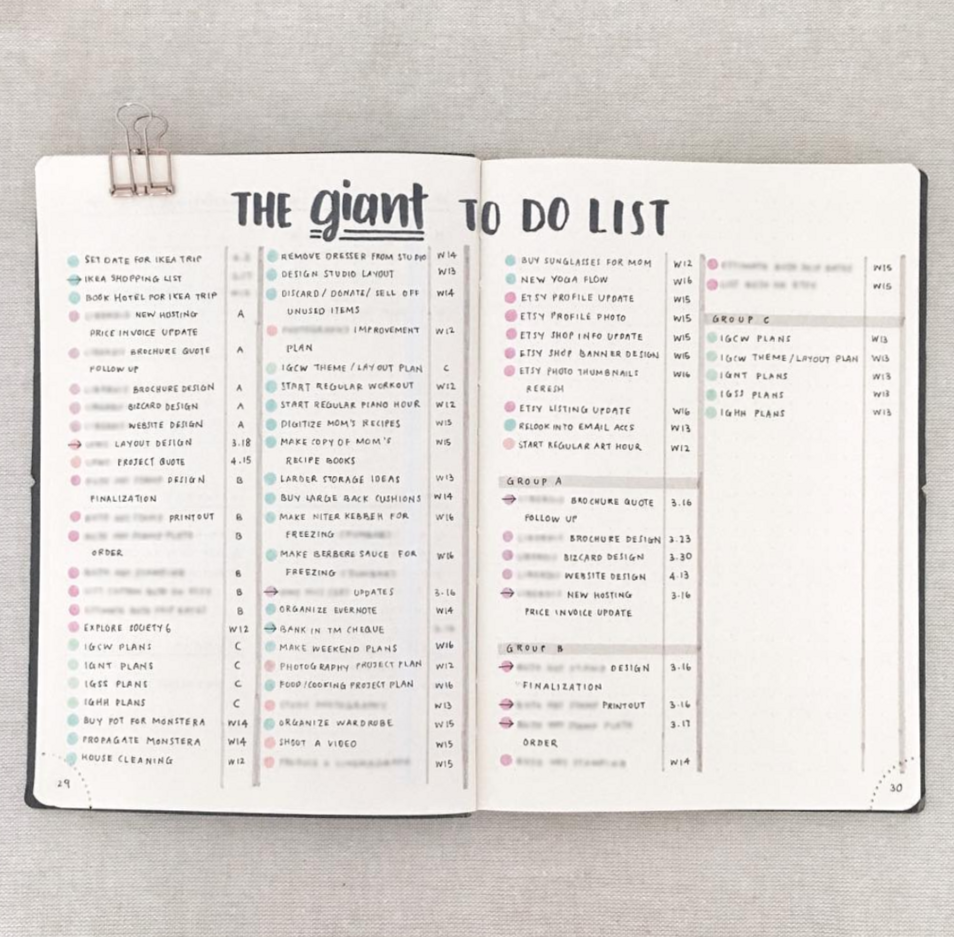 THE giant TO DO LIST
SET DATE FOR IKEA TRIP
IKEA SHOPPING LIST
BOOK HOTEL FOR IKEA TRIP
NEW HOSTING A
PRICE INVOICE UPDATE
BROCHURE QUOTE A
FOLLOW UP
BROCHURE DESIGN A
BIZCARD DESIGN A
WEBSITE DESIGN A
LAYOUT DESIGN 3.18
PROJECT QUOTE 4.15
DESIGN B
FINALIZATION
PRINTOUT B
B
ORDER
B
B
B
EXPLORE SOCIETY6 W12
IGCW PLANS C
IGNT PLANS C
IGSS PLANS C
IGHH PLANS C
BUY POT FOR MONSTERA W14
PROPAGATE MONSTERA W14
HOUSE CLEANING W12
29
REMOVE DRESSER FROM STUDIO W14
DESIGN STUDIO LAYOUT W13
DISCARD/DONATE/SELL OFF W14
UNUSED ITEMS
IMPROVEMENT W12
PLAN
IGCW THEME/LAYOUT PLAN C
START REGULAR WORKOUT W12
START REGULAR PIANO HOUR W12
DIGITIZE MOM'S RECIPES W15
MAKE COPY OF MOM'S W15
RECIPE BOOKS
LARDER STORAGE IDEAS W13
BUY LARGE BACK CUSHIONS W14
MAKE NITER KEBBEH FOR W16
FREEZING
MAKE BERBERE SAUCE FOR W16
FREEZING
UPDATES 3.16
ORGANIZE EVERNOTE W14
BANK IN TM CHEQUE
MAKE WEEKEND PLANS W16
PHOTOGRAPHY PROJECT PLAN W12
FOOD/COOKING PROJECT PLAN W16
W13
ORGANIZE WARDROBE W15
SHOOT A VIDEO W15
W15
BUY SUNGLASSES FOR MOM W12
NEW YOGA FLOW W16
ETSY PROFILE UPDATE W15
ETSY PROFILE PHOTO W15
ETSY SHOP INFO UPDATE W15
ETSY SHOP BANNER DESIGN W15
ETSY PHOTO THUMBNAILS W16
REFRESH
ETSY LISTING UPDATE W16
RELOOK INTO EMAIL ACCS W13
START REGULAR ART HOUR W12
GROUP A
BROCHURE QUOTE 3.16
FOLLOW UP
BROCHURE DESIGN 3.23
BIZCARD DESIGN 3.30
WEBSITE DESIGN 4.13
NEW HOSTING 3.16
PRICE INVOICE UPDATE
GROUP B
DESIGN 3.16
FINALIZATION
PRINTOUT 3.16
3.17
ORDER
W14
W15
W15
GROUP C
IGCW PLANS W13
IGCW THEME/LAYOUT PLAN W13
IGNT PLANS W13
IGSS PLANS W13
IGHH PLANS W13
30